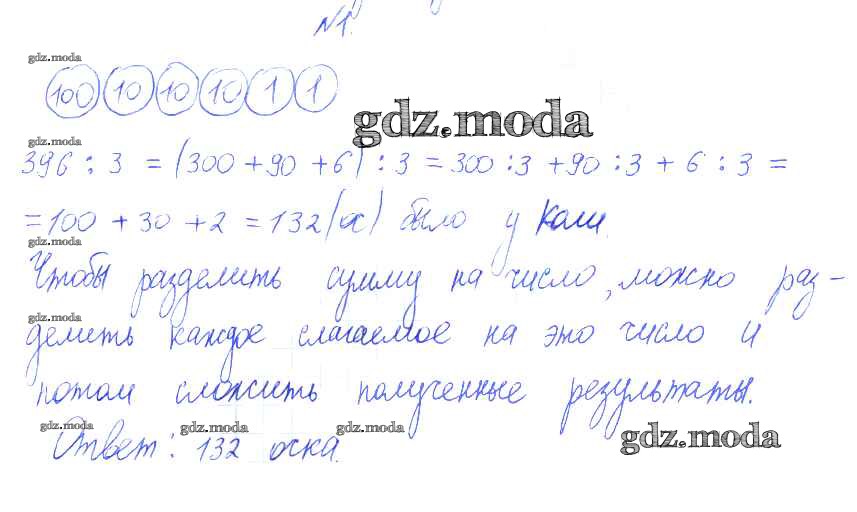 №1.
gdz.moda
100 10 10 10 1 1
gdz.moda
gdz.moda
396 : 3 = (300 + 90 + 6) : 3 = 300 : 3 + 90 : 3 + 6 : 3 =
= 100 + 30 + 2 = 132 (оч) было у Коли.
gdz.moda
Чтобы разделить сумму на число, можно раз-
gdz.moda
делить каждое слагаемое на это число и
потом сложить полученные результаты.
gdz.moda gdz.moda gdz.moda
Ответ: 132 очка.
gdz.moda